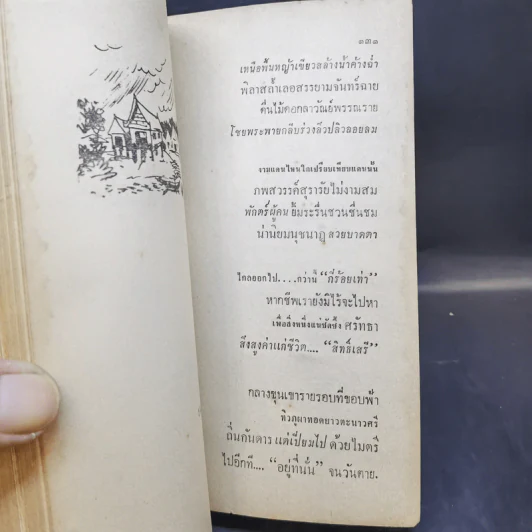 ๑๓๑
เหนือพื้นหญ้าเขียวล้างน้ำค้างฉ่ำ
พิลาสล้ำเลอสรรยามจันทร์ฉาย
ดื่นไม้ดอกลาวัณย์พรรณราย
โชยพระพายกลีบร่วงลิ่วปลิวลอยลม
งามแดนไหนใดเปรียบเทียบแดนนั้น
ภพสวรรค์สุราลัยไม่งามสม
พักตร์ผู้คนยิ้มระรื่นชวนชื่นชม
น่านิยมนุชนาฏลวยบาดตา
ไกลออกไป....กว่านี้ "กี่ร้อยเท่า"
หากชีพเรายังมีไร้จะไปหา
เพื่อสิ่งหนึ่งแน่ชัดซึ้ง ศรัทธา
สิ่งสูงค่าแก่ชีวิต.... "สิทธิ์เสรี"
กลางขุนเขารายรอบที่ขอบฟ้า
ทิวภูผาทอดยาวตะนาวศรี
ถิ่นกันดารแต่เปี่ยมไปด้วยไมตรี
ไปอีกที.... "อยู่ที่นั่น" จนวันตาย.